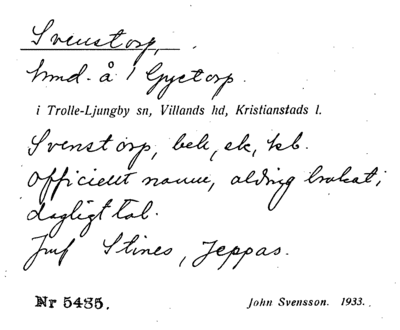 Svenstorp,
hmd. å 1 Gyetorp.
i Trolle-Ljungby sn, Villands hd, Kristianstads l.
Svenstorp, bek, ek, kb.
officiellt namn, aldrig brukat i
dagligt tal.
Jmf Stines, Jeppas.
Nr 5485.
John Svensson. 1933.